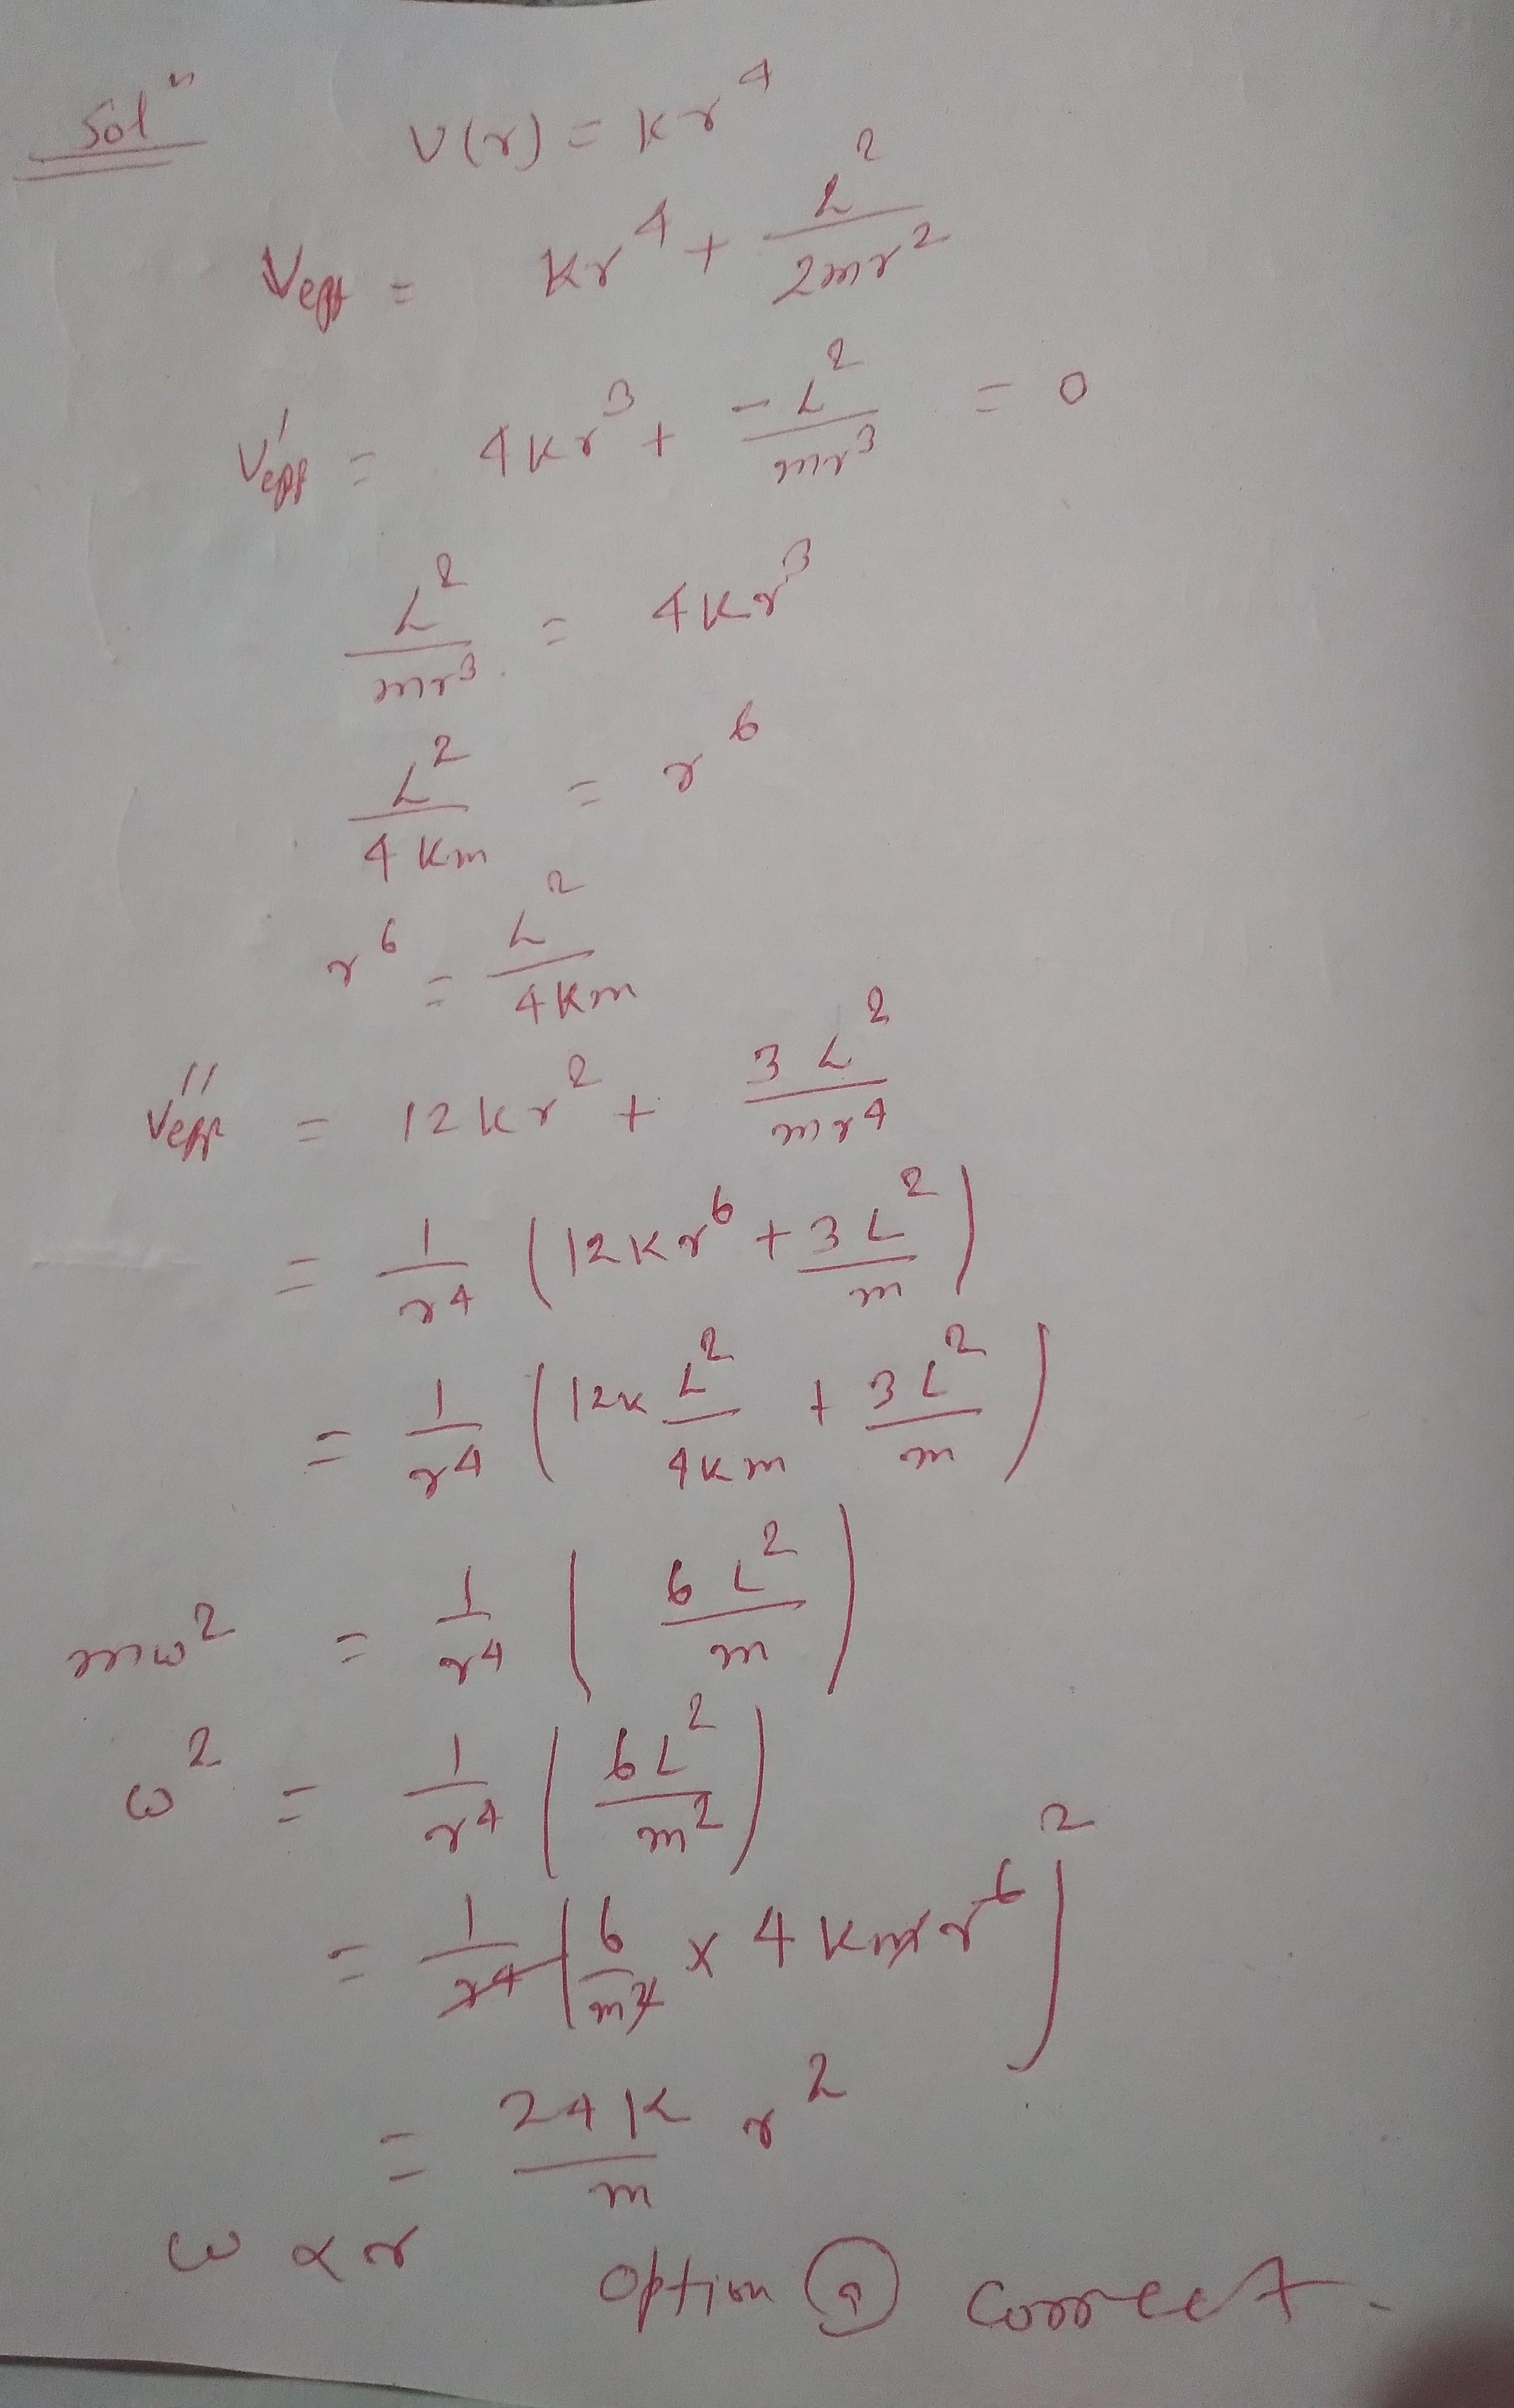 Solⁿ V(r) = kr⁴
Veff = kr⁴ + L²/2mr²
V'eff = 4kr³ + -L²/mr³ = 0
L²/mr³ = 4kr³
L²/4km = r⁶
r⁶ = L²/4km
V''eff = 12kr² + 3L²/mr⁴
= 1/r⁴ (12kr⁶ + 3L²/m)
= 1/r⁴ (12k L²/4km + 3L²/m)
mω² = 1/r⁴ (6L²/m)
ω² = 1/r⁴ (6L²/m²)
= 1/r⁴ (6/m² × 4kmr⁶)²
= 24k/m r²
ω ∝ r option correct.